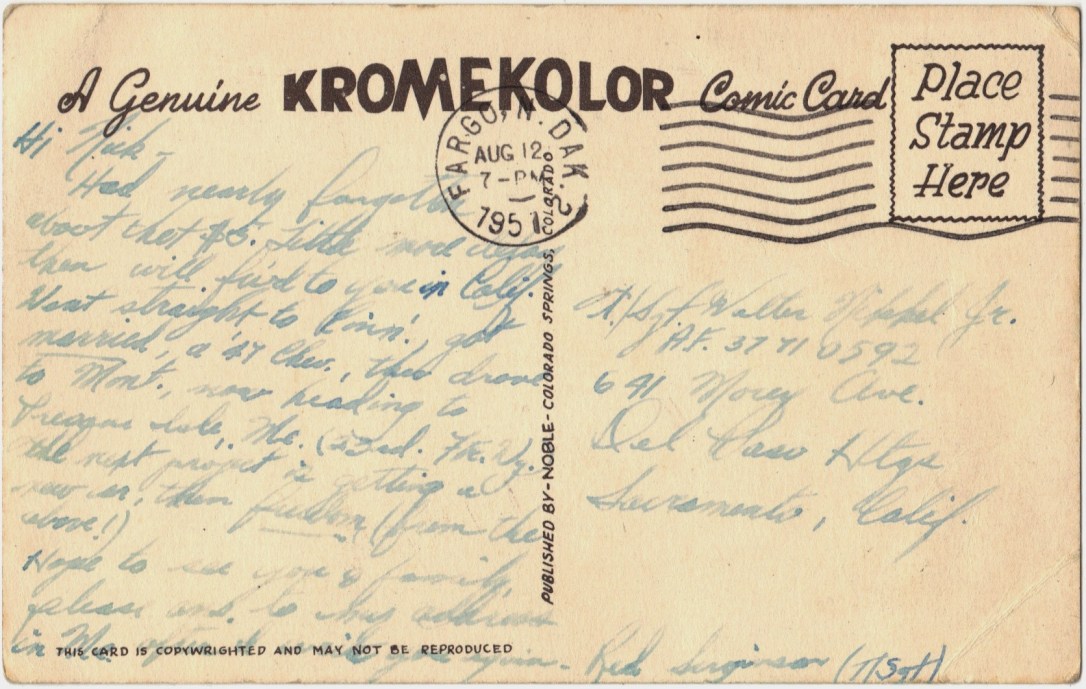 A Genuine KROMEKOLOR Comic Card
Place
Stamp
Here
FARGO, N. DAK. 2
AUG 12
7-PM
1951
Hi Nick -
Had nearly forgotten
about that $5. Little more
then will find to you in Calif.
Went straight to got
married, a '47 Chev., then drove
to Mont., now heading to
Presque Isle, Me. (23rd. Ftr. Wg.
the next project is getting a
new, then freedom (from the
above!)
Hope to see you & family,
please ans. to my address
in Me. after I write you again -
Red (T/Sgt)
T/Sgt Walter Jr.
A.F. 37710592
641 Morey Ave.
Del Paso Htgs
Sacramento, Calif.
PUBLISHED BY-NOBLE-COLORADO SPRINGS, COLORADO
THIS CARD IS COPYWRIGHTED AND MAY NOT BE REPRODUCED